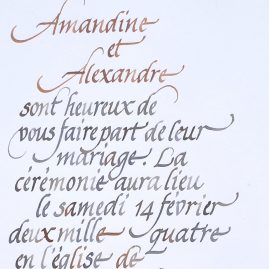 Amandine
et
Alexandre
sont heureux de
vous faire part de leur
mariage. La
cérémonie aura lieu
le samedi 14 février
deux mille quatre
en l'église de